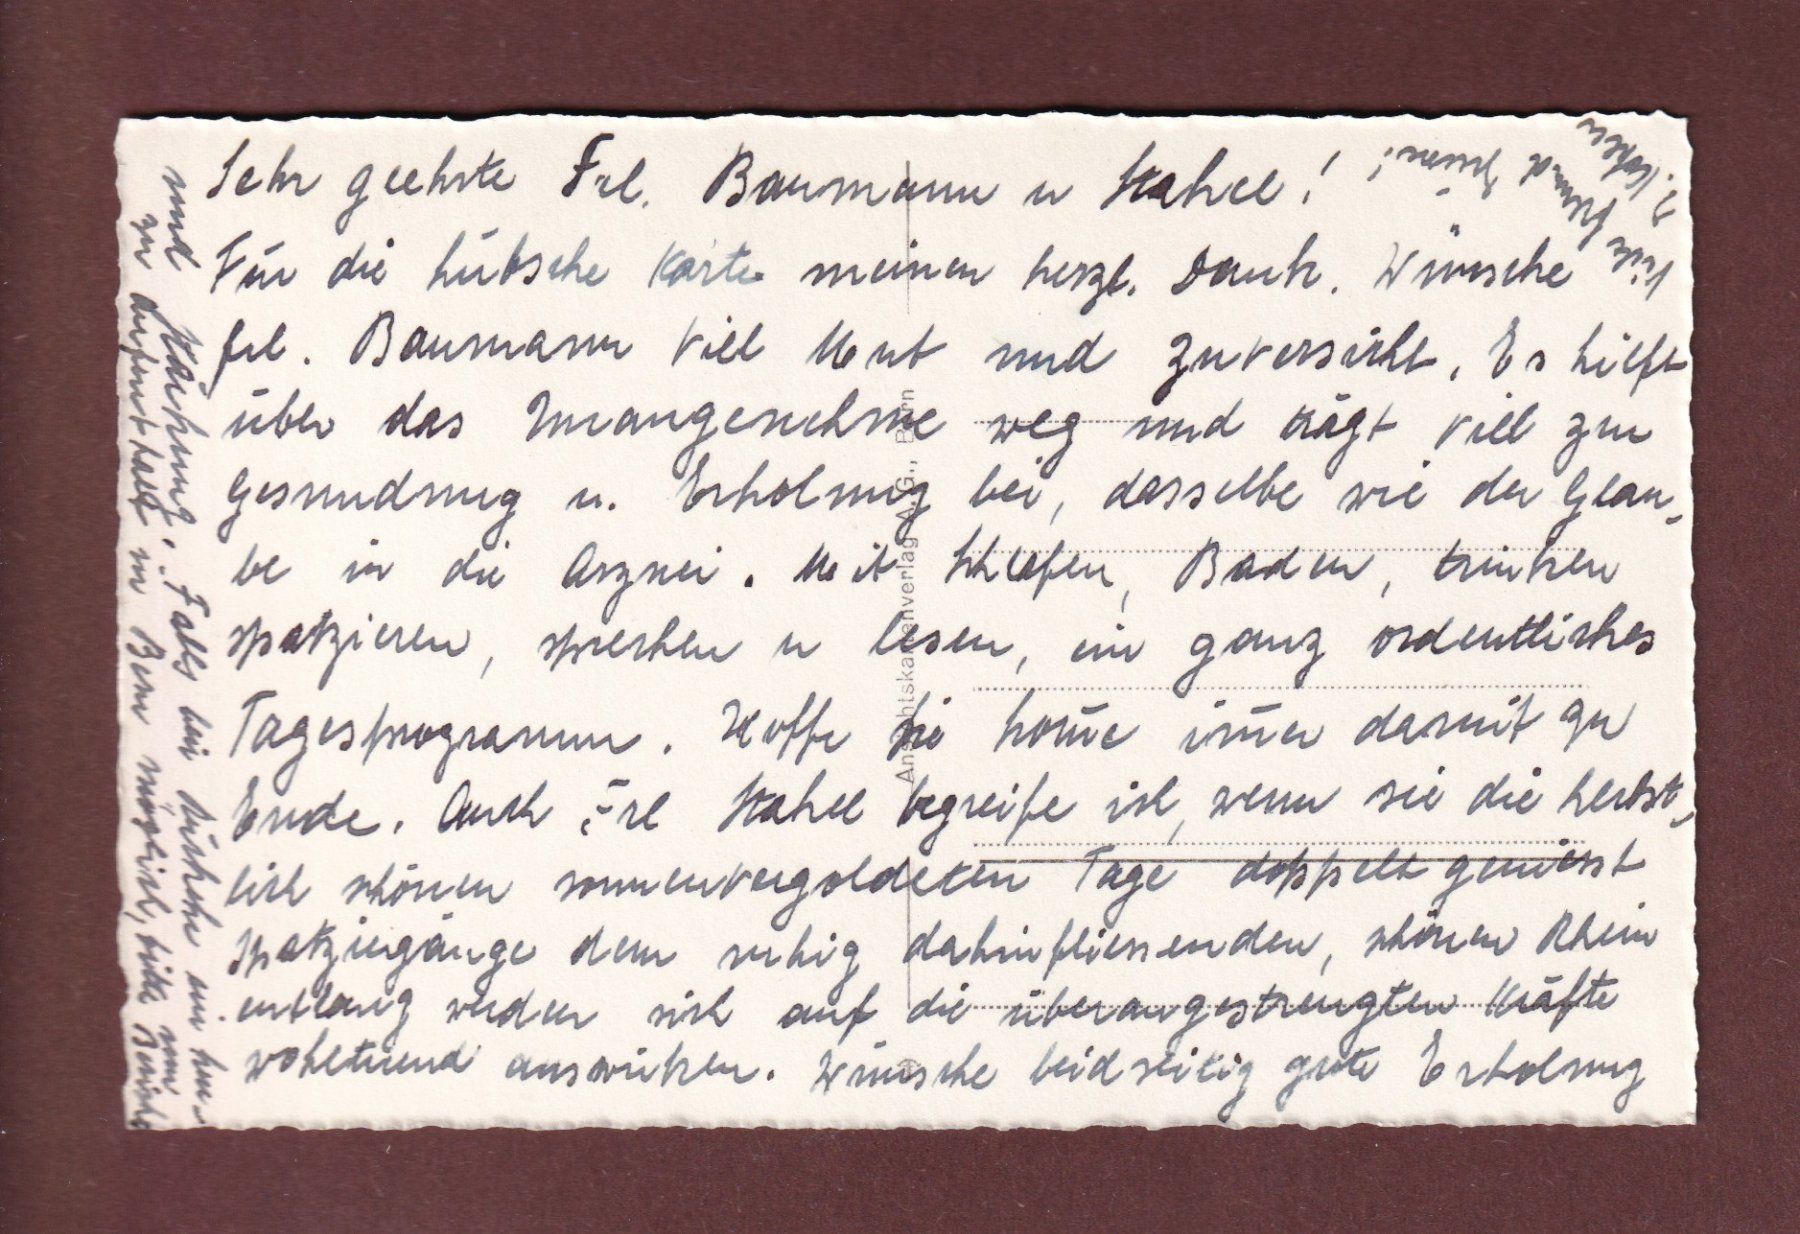 Sehr geehrte Frl. Baumann u Stahel!
Für die hübsche Karte meinen herzl. Dank. Wünsche
Frl. Baumann viel Mut und Zuversicht. Es hilft
über das Unangenehme weg und trägt viel zur
Gesundung u. Erholung bei, dasselbe wie der Glau-
be in die Arznei. Mit Schlafen, Baden, trinken
spatzieren, sprechen u lesen, ein ganz ordentliches
Tagesprogramm. Hoffe Sie kom̄e im̄er damit zu
Ende. Auch Frl Stahel begreife ich, wenn sie die herbst-
lich schönen sonnenvergoldeten Tage doppelt geniesst
Spatziergänge dem ruhig dahinfliessenden, schönen Rhein
entlang werden sich auf die überangestrengten Kräfte
wohltuend auswirken. Wünsche beidseitig gute Erholung
und Stärkung. Falls bei Rückkehr ein kur-
zer Aufenthalt in Bern möglich, bitte um Bericht
Ansichtskartenverlag A.G., Bern